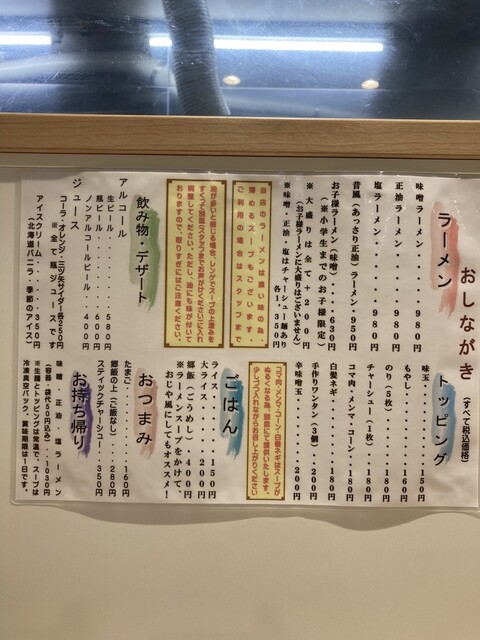 おしながき (すべて税込価格)
ラーメン
味噌ラーメン・・・・・・980円
正油ラーメン・・・・・・980円
塩ラーメン・・・・・・・980円
昔風(あっさり正油)ラーメン・・950円
お子様ラーメン(味噌)・・・630円
(※小学生までのお子様限定)
※大盛りは全て+200円
(お子様ラーメンに大盛りはございません)
※味噌・正油・塩はチャーシュー麺あり
各1,350円
当店のラーメンは濃い味の為、
薄めるスープもございます。
ご利用の場合はスタッフまで
油が多いと感じる場合、レンゲでスープの上澄みを
すくって別皿(スタッフまでお声がけください)に入れ
調整してください。ただし、油にも味が付いて
おりますので、取りすぎにはご注意ください。
飲み物・デザート
アルコール
生ビール・・・・・580円
瓶ビール・・・・・600円
ノンアルコールビール・・400円
ジュース
コーラ・オレンジ・三ツ矢サイダー各250円
※全て瓶ジュースです
アイスクリーム・・・・350円
(北海道バニラ・季節のアイス)
トッピング
味玉・・・・・・・150円
もやし・・・・・・160円
のり(5枚)・・・・180円
チャーシュー(1枚)・・180円
コマ肉・メンマ・コーン・180円
白髪ネギ・・・・・180円
手作りワンタン(3個)・・200円
辛味噌玉・・・・・200円
コマ肉・メンマ・コーン・白髪ネギはスープが
ぬるくなる為、別皿にて提供いたします。
少しづつ入れながらお召し上がりください
ごはん
ライス・・・・150円
大ライス・・・200円
郷飯(ごうめし)・400円
※ラーメンスープをかけて、
おじや風にしてもオススメ!
おつまみ
たまご・・・・・・・160円
郷飯の上(ご飯なし)・・280円
スティックチャーシュー・・350円
お持ち帰り
味噌・正油・塩ラーメン
(容器・袋代50円込み)・・1030円
※生麺とトッピングは常温で、スープは
冷凍真空パック、賞味期限は1日です。